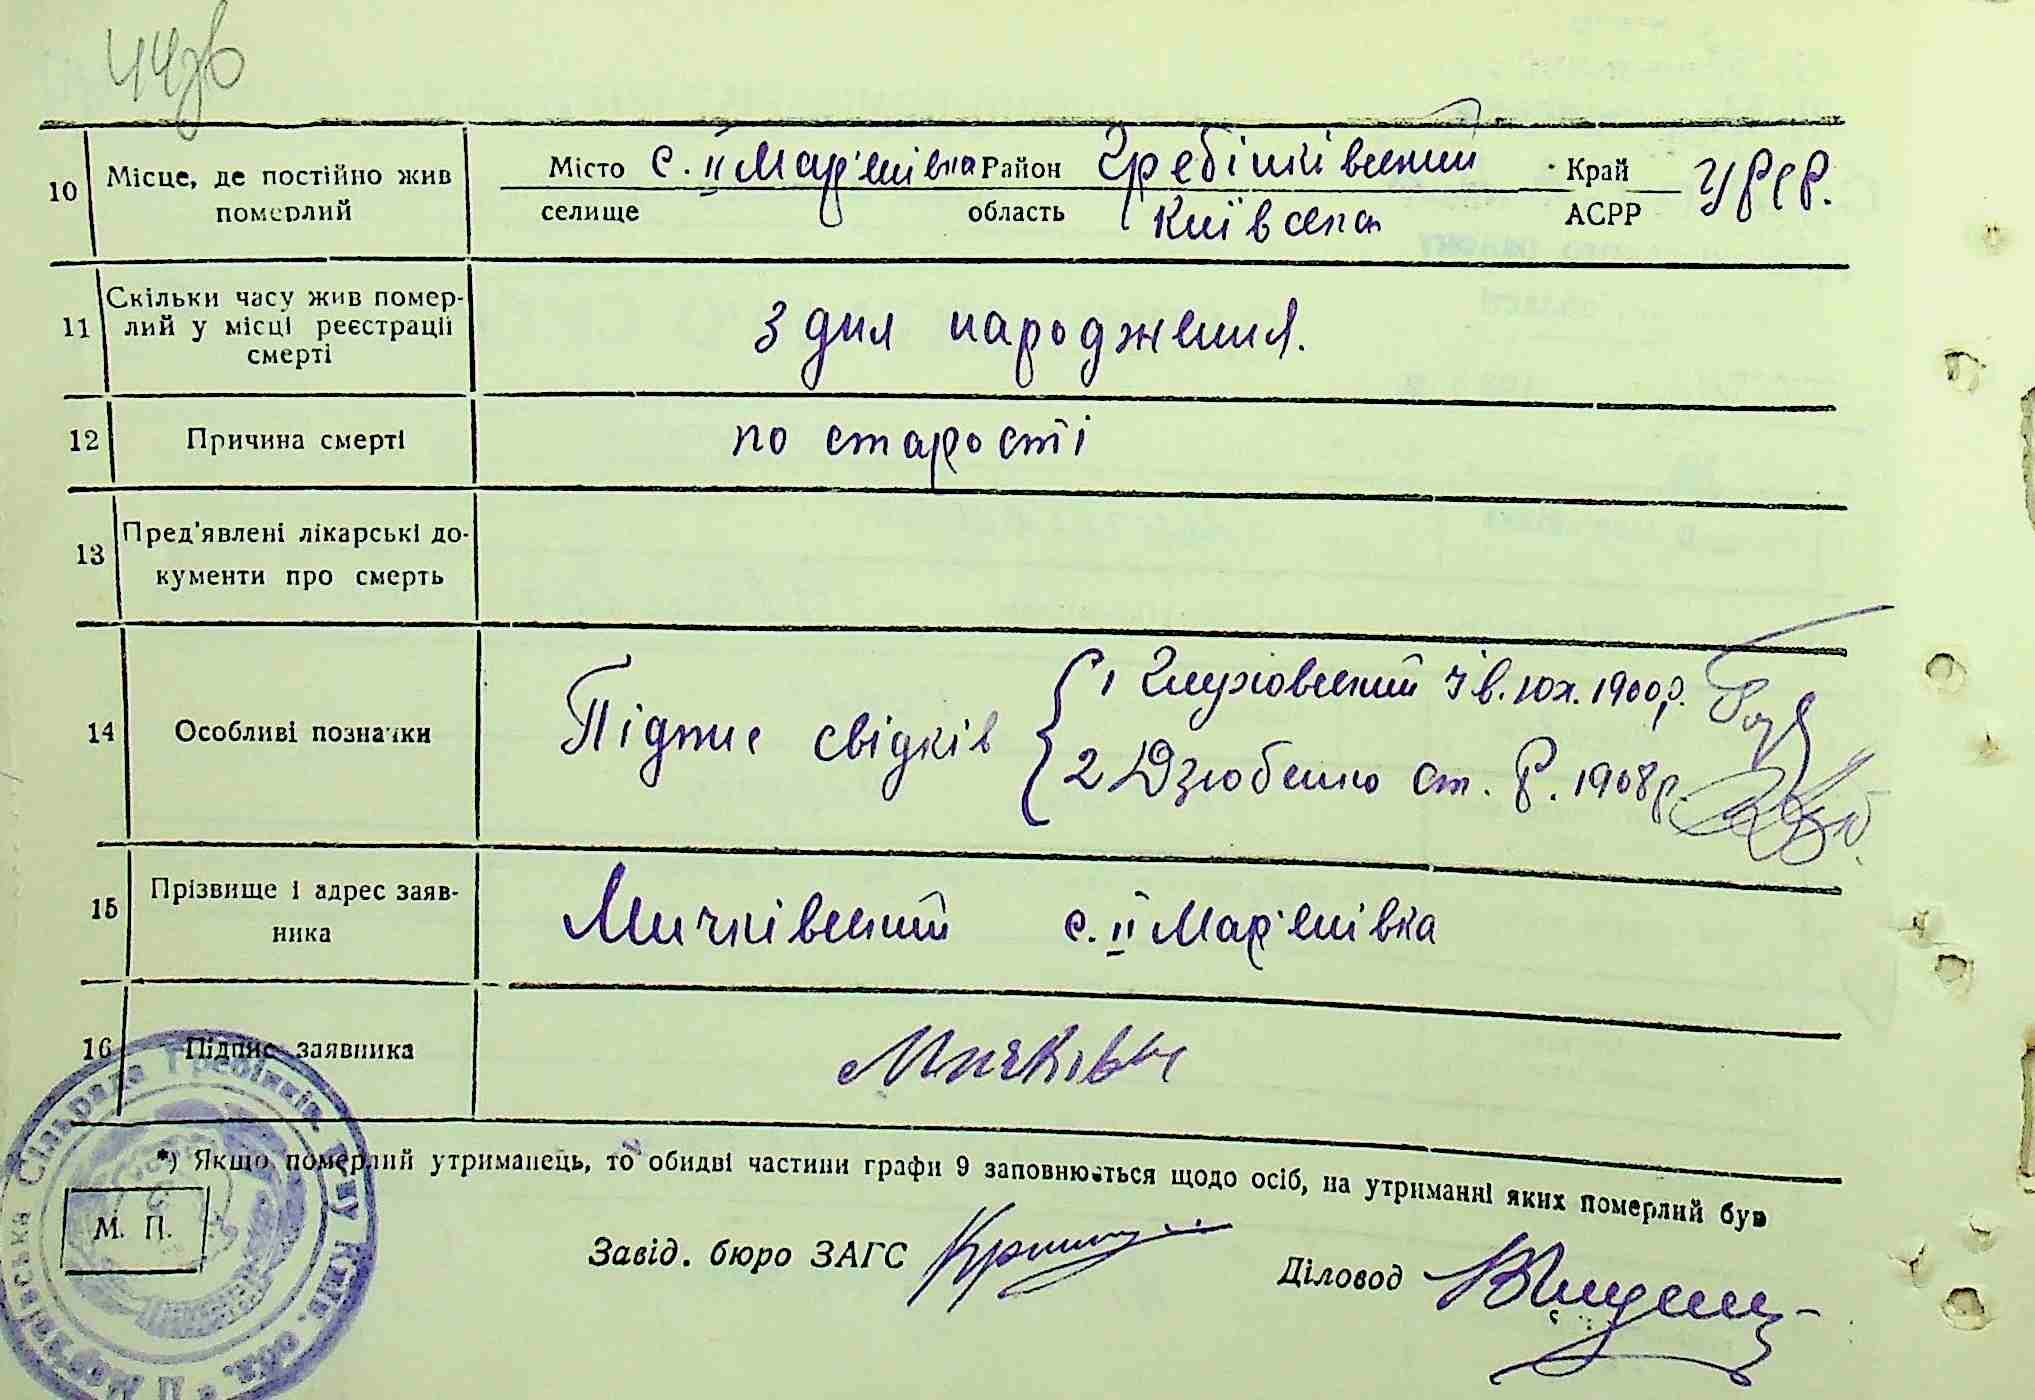 10 Місце, де постійно жив
померлий
Місто с. II Мар'янівка Район Гребінківський Край УРСР.
селище область Київська АСРР
11 Скільки часу жив помер-
лий у місці реєстрації
смерті
З дня народження.
12 Причина смерті по старості
13 Пред'явлені лікарські до-
кументи про смерть
14 Особливі позначки
Підпис свідків
1 Глуховський Ів. Юх. 1900 р.
2 Дзюбенко Ст. Р. 1908 р.
15 Прізвище і адрес заяв-
ника
Мичківський с. II Мар'янівка
16 Підпис заявника
Мичківсь
*) Якщо померлий утриманець, то обидві частини графи 9 заповнюється щодо осіб, на утриманні яких померлий був
М. П.
Завід. бюро ЗАГС
Діловод
Сільрада Гребінків. р-ну Київ. обл.